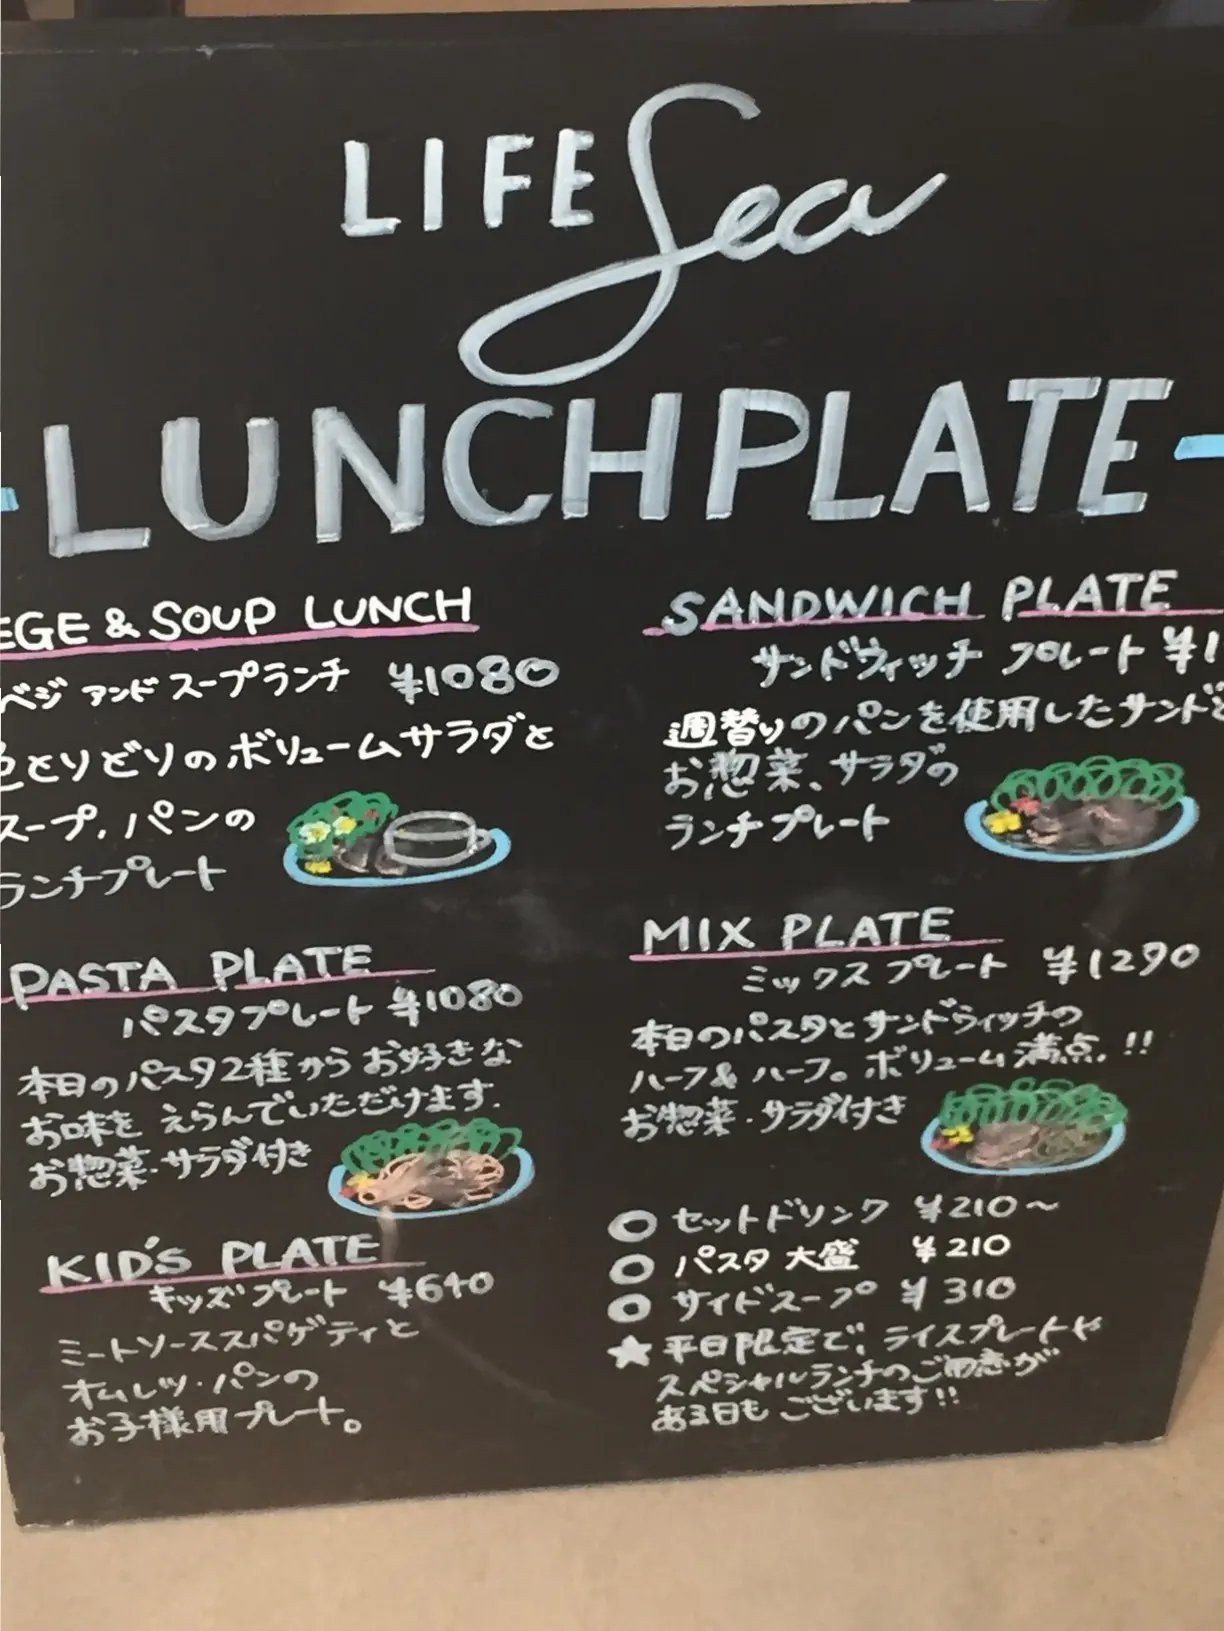 LIFE Sea
LUNCH PLATE
EGE & SOUP LUNCH
ベジ アンド スープランチ ¥1080
色とりどりのボリュームサラダと
スープ、パンの
ランチプレート
PASTA PLATE
パスタプレート ¥1080
本日のパスタ2種から お好きな
お味を えらんでいただけます.
お惣菜・サラダ付き
KID'S PLATE
キッズプレート ¥640
ミートソーススパゲティと
オムレツ・パンの
お子様用プレート。
SANDWICH PLATE
サンドウィッチ プレート ¥1
週替りのパンを使用したサンドと
お惣菜、サラダの
ランチプレート
MIX PLATE
ミックスプレート ¥1290
本日のパスタとサンドウィッチの
ハーフ&ハーフ。ボリューム満点.!!
お惣菜・サラダ付き
○ セットドリンク ¥210〜
○ パスタ大盛 ¥210
○ サイドスープ ¥310
★平日限定で、ライスプレートや
スペシャルランチのご用意が
ある日もございます!!